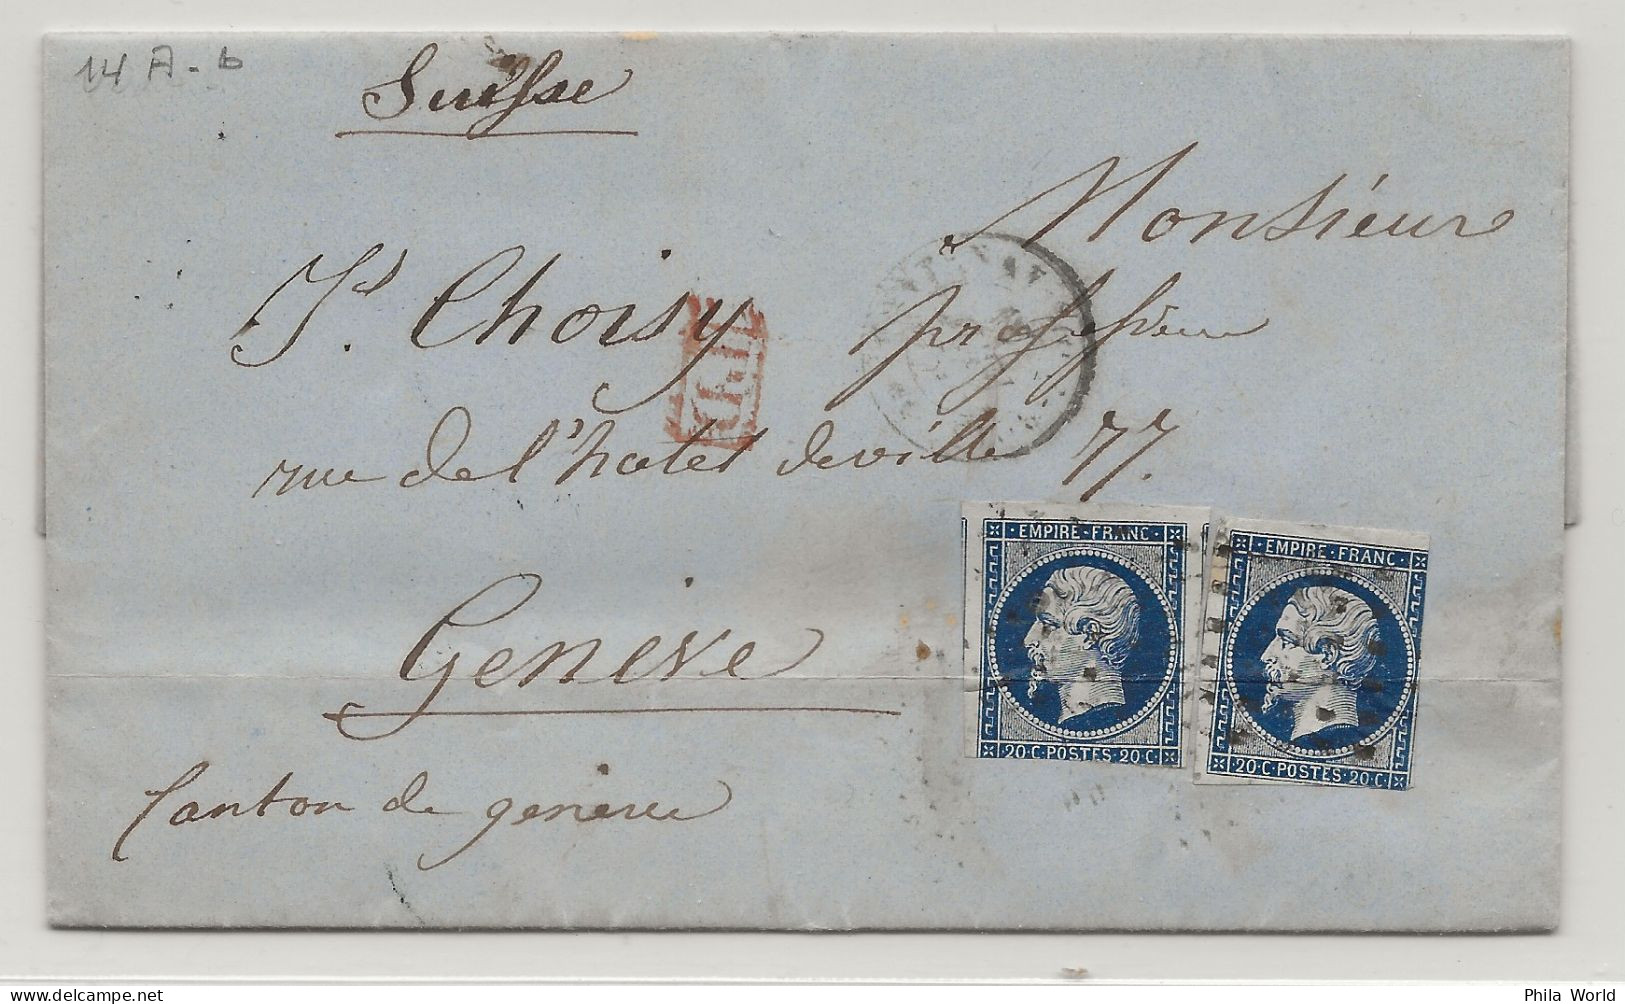 14 A - b
Suisse
Monsieur
Jd. Choisy professeur
PD
rue de l'hotel deville 77.
EMPIRE · FRANC ·
20 · C · POSTES · 20 · C ·
EMPIRE · FRANC ·
20 · C · POSTES · 20 · C ·
Genève
Canton de geneve
delcampe.net
Phila World